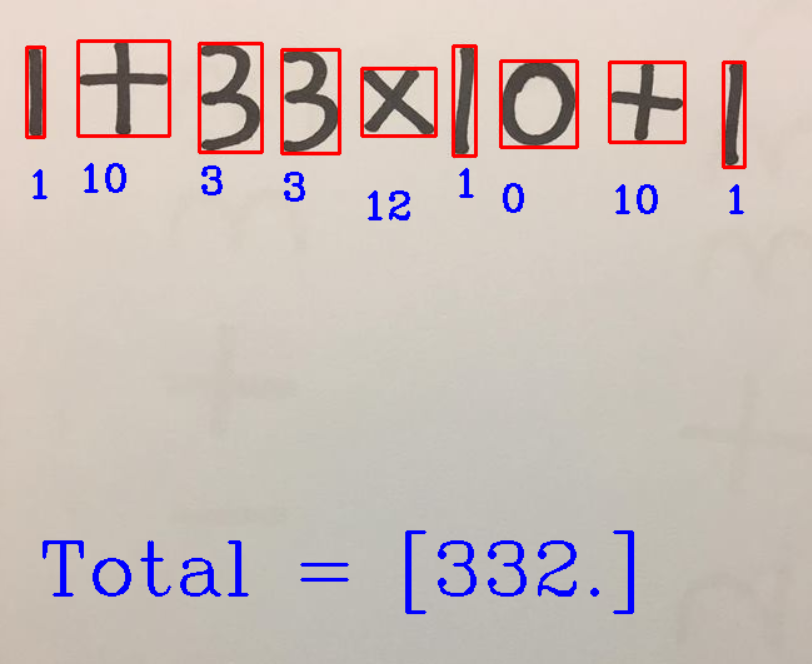 1 + 33 × 10 + 1
1 10 3 3 12 1 0 10 1
Total = [332.]